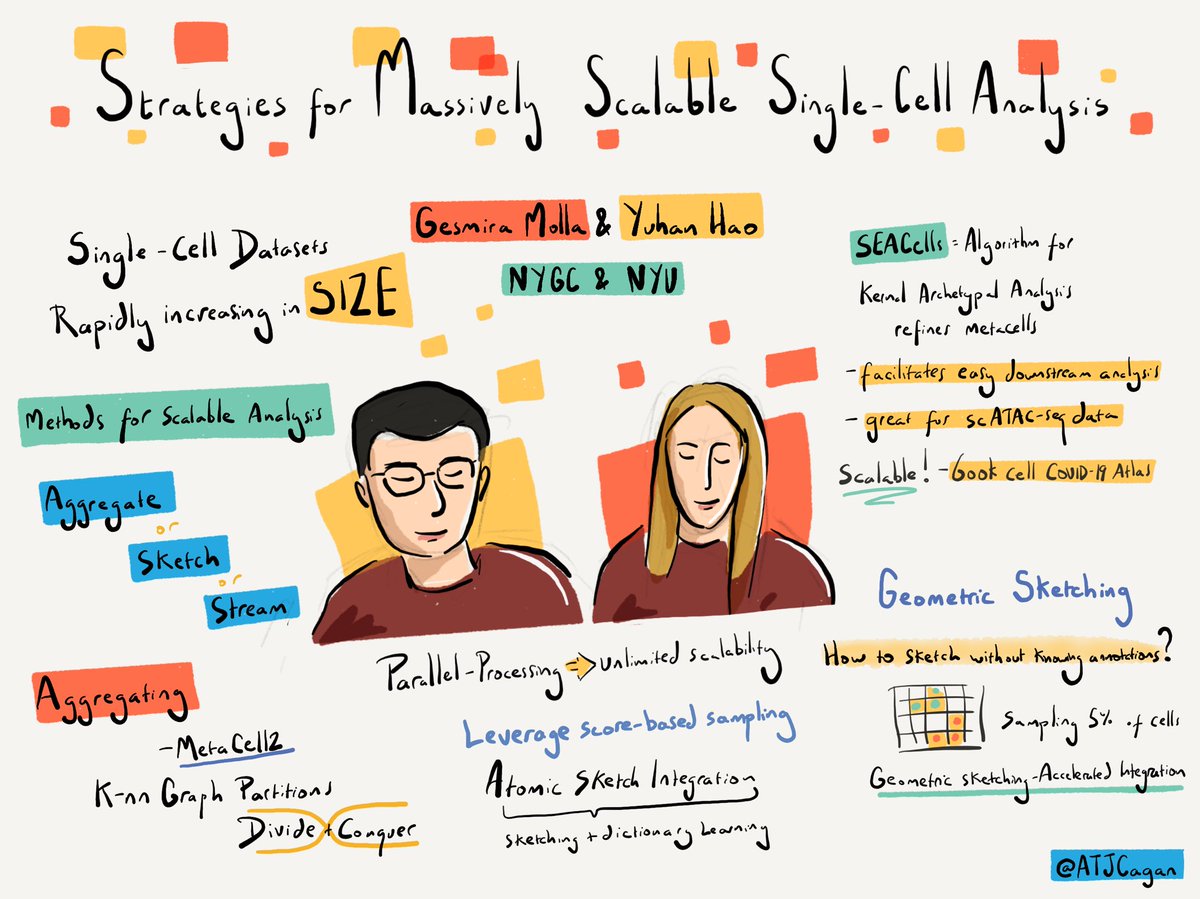 Strategies for Massively Scalable Single-Cell Analysis
Gesmira Molla & Yuhan Hao
NYGC & NYU
Single-Cell Datasets
Rapidly increasing in SIZE
Methods for Scalable Analysis
Aggregate
or
Sketch
or
Stream
Aggregating
- MetaCell2
K-nn Graph Partitions
Divide + Conquer
Parallel-Processing ⇒ Unlimited scalability
Leverage score-based sampling
Atomic Sketch Integration
Sketching + dictionary Learning
SEACells = Algorithm for
Kernel Archetypal Analysis
refines metacells
- facilitates easy downstream analysis
- great for scATAC-seq data
Scalable! - 600k cell COVID-19 Atlas
Geometric Sketching
How to sketch without knowing annotations?
Sampling 5% of cells
Geometric sketching-Accelerated Integration
@ATJCagan